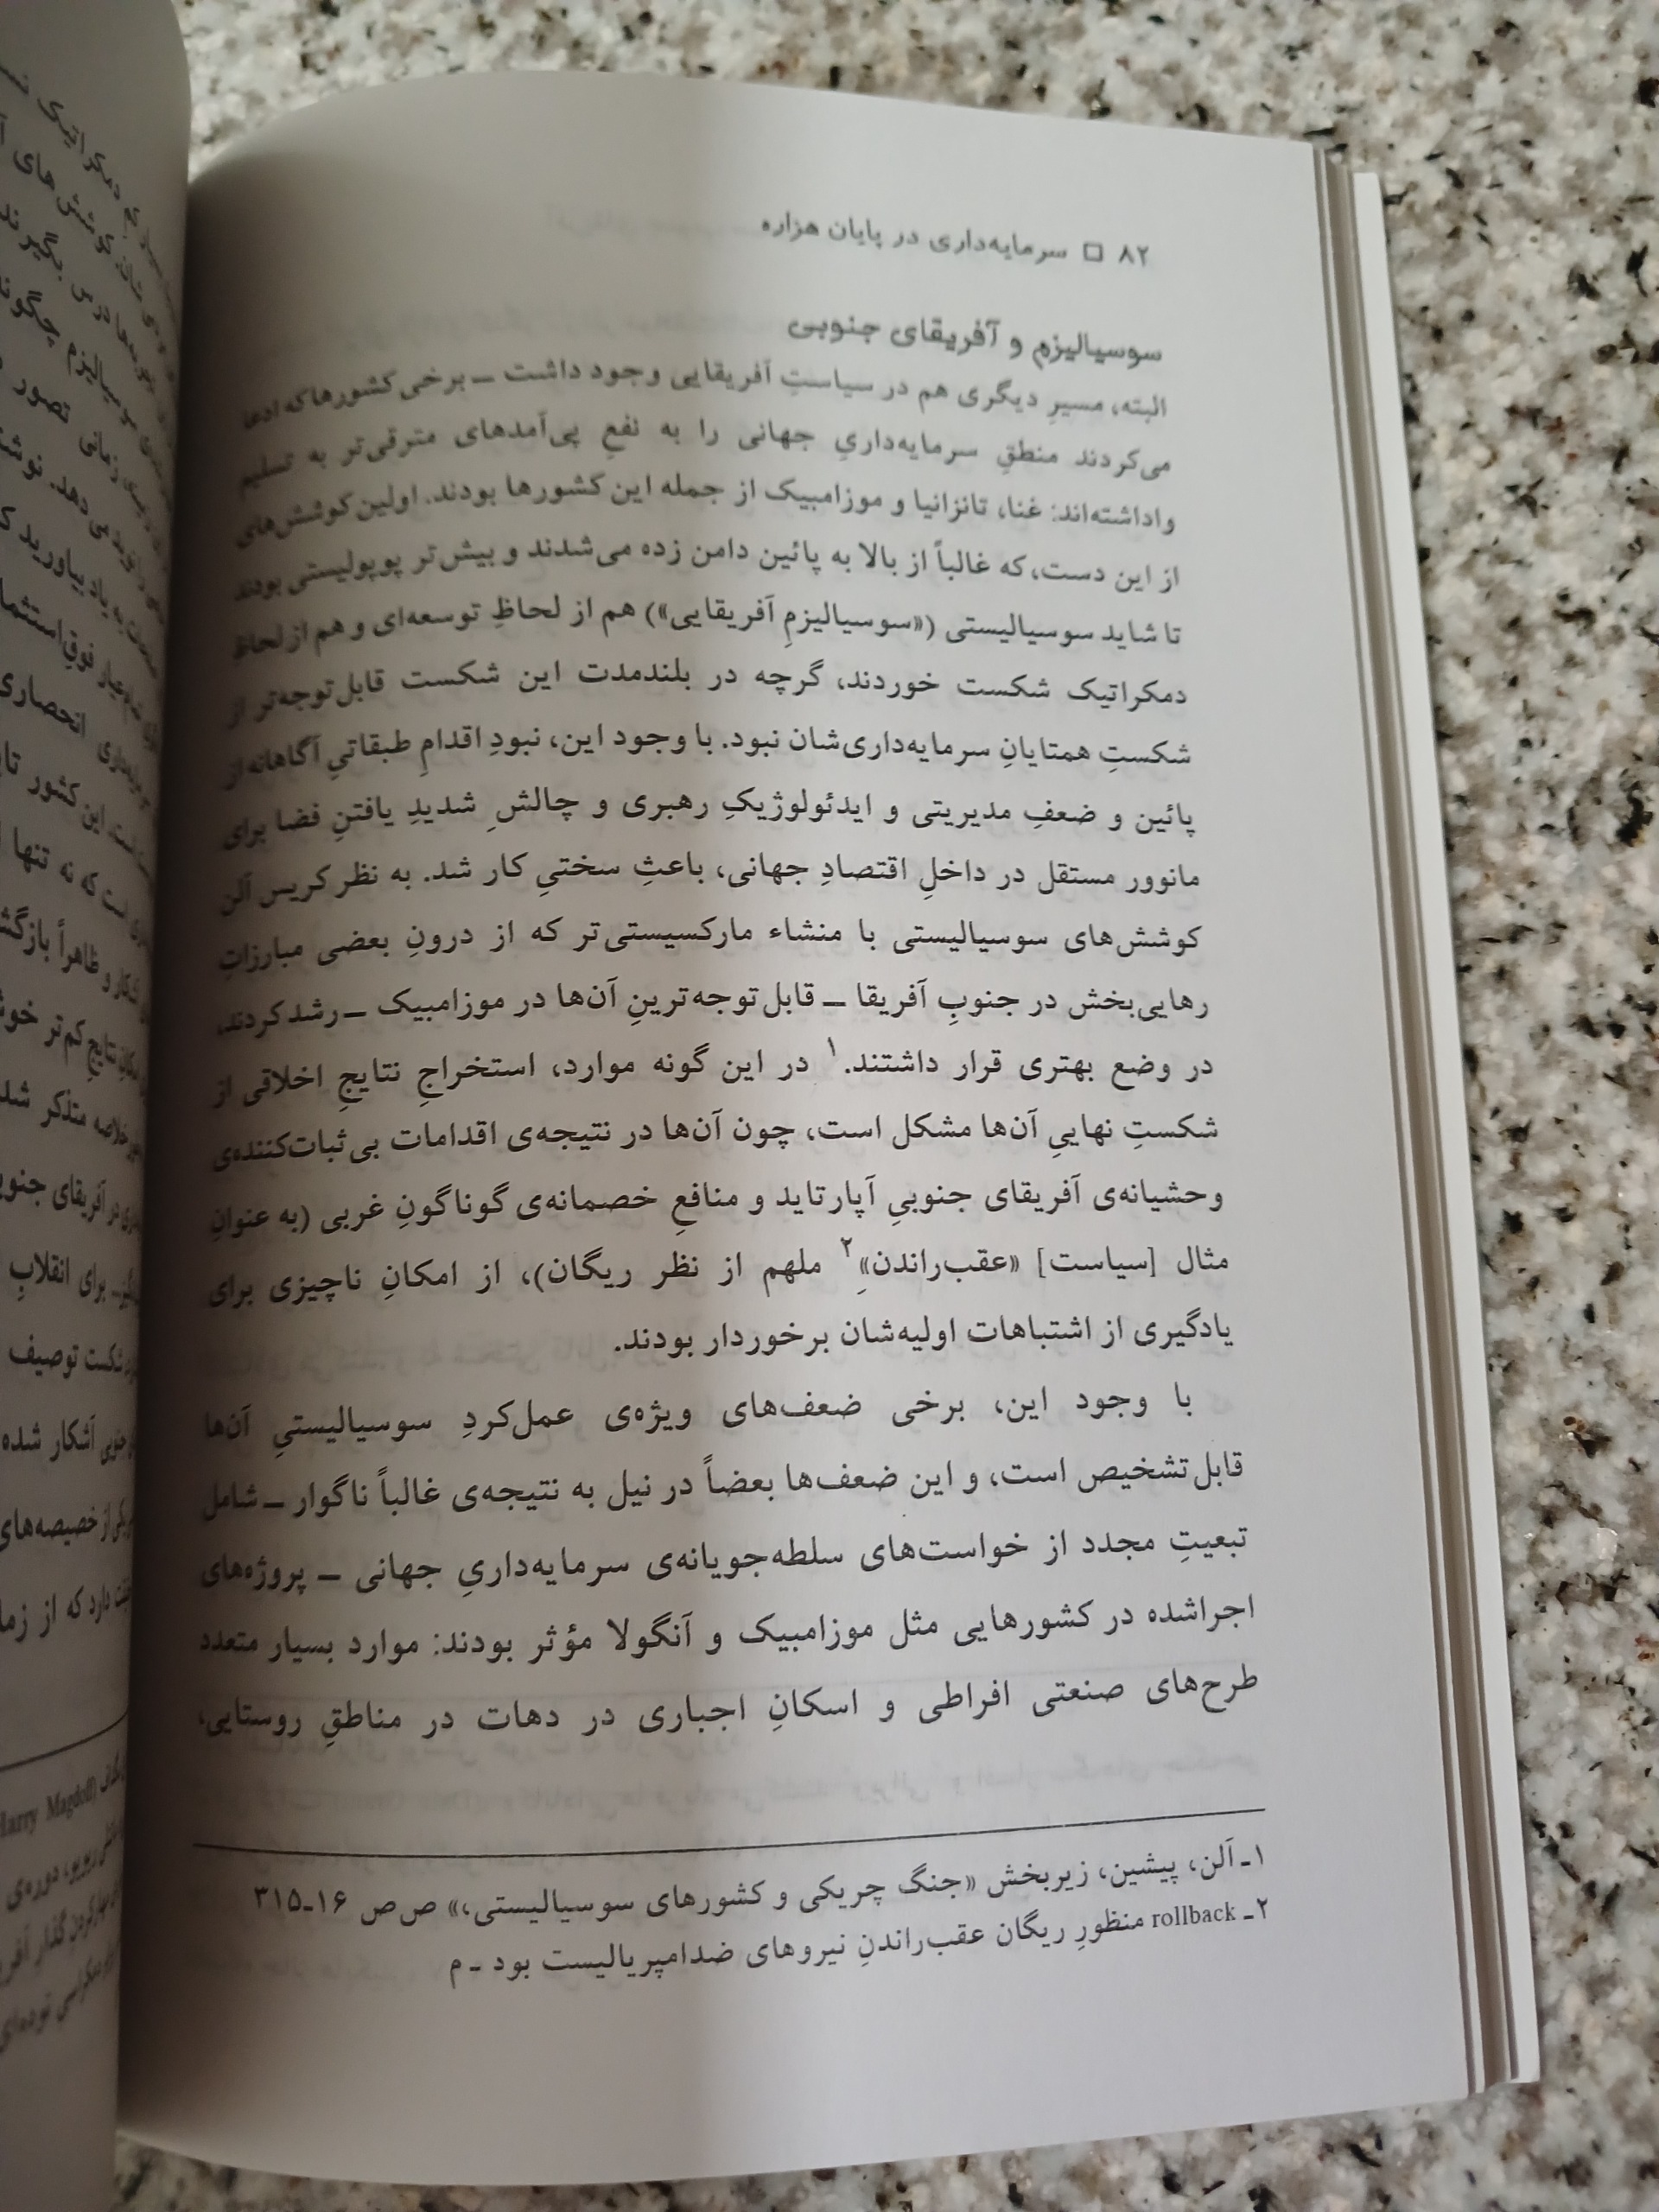 ۸۲ □ سرمایه‌داری در پایان هزاره
سوسیالیزم و آفریقای جنوبی
البته، مسیرِ دیگری هم در سیاستِ آفریقایی وجود داشت ــ برخی کشورها که ادعا
می‌کردند منطقِ سرمایه‌داریِ جهانی را به نفعِ پی‌آمدهای مترقی‌تر به تسلیم
واداشته‌اند: غنا، تانزانیا و موزامبیک از جمله این کشورها بودند. اولین کوشش‌های
از این دست، که غالباً از بالا به پائین دامن زده می‌شدند و بیش‌تر پوپولیستی بودند
تا شاید سوسیالیستی («سوسیالیزمِ آفریقایی») هم از لحاظِ توسعه‌ای و هم از لحاظ
دمکراتیک شکست خوردند، گرچه در بلندمدت این شکست قابل‌توجه‌تر از
شکستِ همتایانِ سرمایه‌داری‌شان نبود. با وجود این، نبودِ اقدامِ طبقاتیِ آگاهانه از
پائین و ضعفِ مدیریتی و ایدئولوژیکِ رهبری و چالشِ شدیدِ یافتنِ فضا برای
مانوور مستقل در داخلِ اقتصادِ جهانی، باعثِ سختیِ کار شد. به نظر کریس آلن
کوشش‌های سوسیالیستی با منشاء مارکسیستی‌تر که از درونِ بعضی مبارزاتِ
رهایی‌بخش در جنوبِ آفریقا ــ قابل‌توجه‌ترینِ آن‌ها در موزامبیک ــ رشد کردند،
در وضع بهتری قرار داشتند.۱ در این گونه موارد، استخراجِ نتایجِ اخلاقی از
شکستِ نهاییِ آن‌ها مشکل است، چون آن‌ها در نتیجه‌ی اقدامات بی‌ثبات‌کننده‌ی
وحشیانه‌ی آفریقای جنوبیِ آپارتاید و منافعِ خصمانه‌ی گوناگونِ غربی (به عنوانِ
مثال [سیاست] «عقب‌راندنِ»۲ ملهم از نظر ریگان)، از امکانِ ناچیزی برای
یادگیری از اشتباهات اولیه‌شان برخوردار بودند.
با وجود این، برخی ضعف‌های ویژه‌ی عمل‌کردِ سوسیالیستیِ آن‌ها
قابل‌تشخیص است، و این ضعف‌ها بعضاً در نیل به نتیجه‌ی غالباً ناگوار ــ شامل
تبعیتِ مجدد از خواست‌های سلطه‌جویانه‌ی سرمایه‌داریِ جهانی ــ پروژه‌های
اجراشده در کشورهایی مثل موزامبیک و آنگولا مؤثر بودند: موارد بسیار متعدد
طرح‌های صنعتی افراطی و اسکانِ اجباری در دهات در مناطقِ روستایی،
۱ـ آلن، پیشین، زیربخش «جنگ چریکی و کشورهای سوسیالیستی،» ص‌ص ۱۶ـ۳۱۵
۲ـ rollback منظورِ ریگان عقب‌راندنِ نیروهای ضدامپریالیست بود ـ م